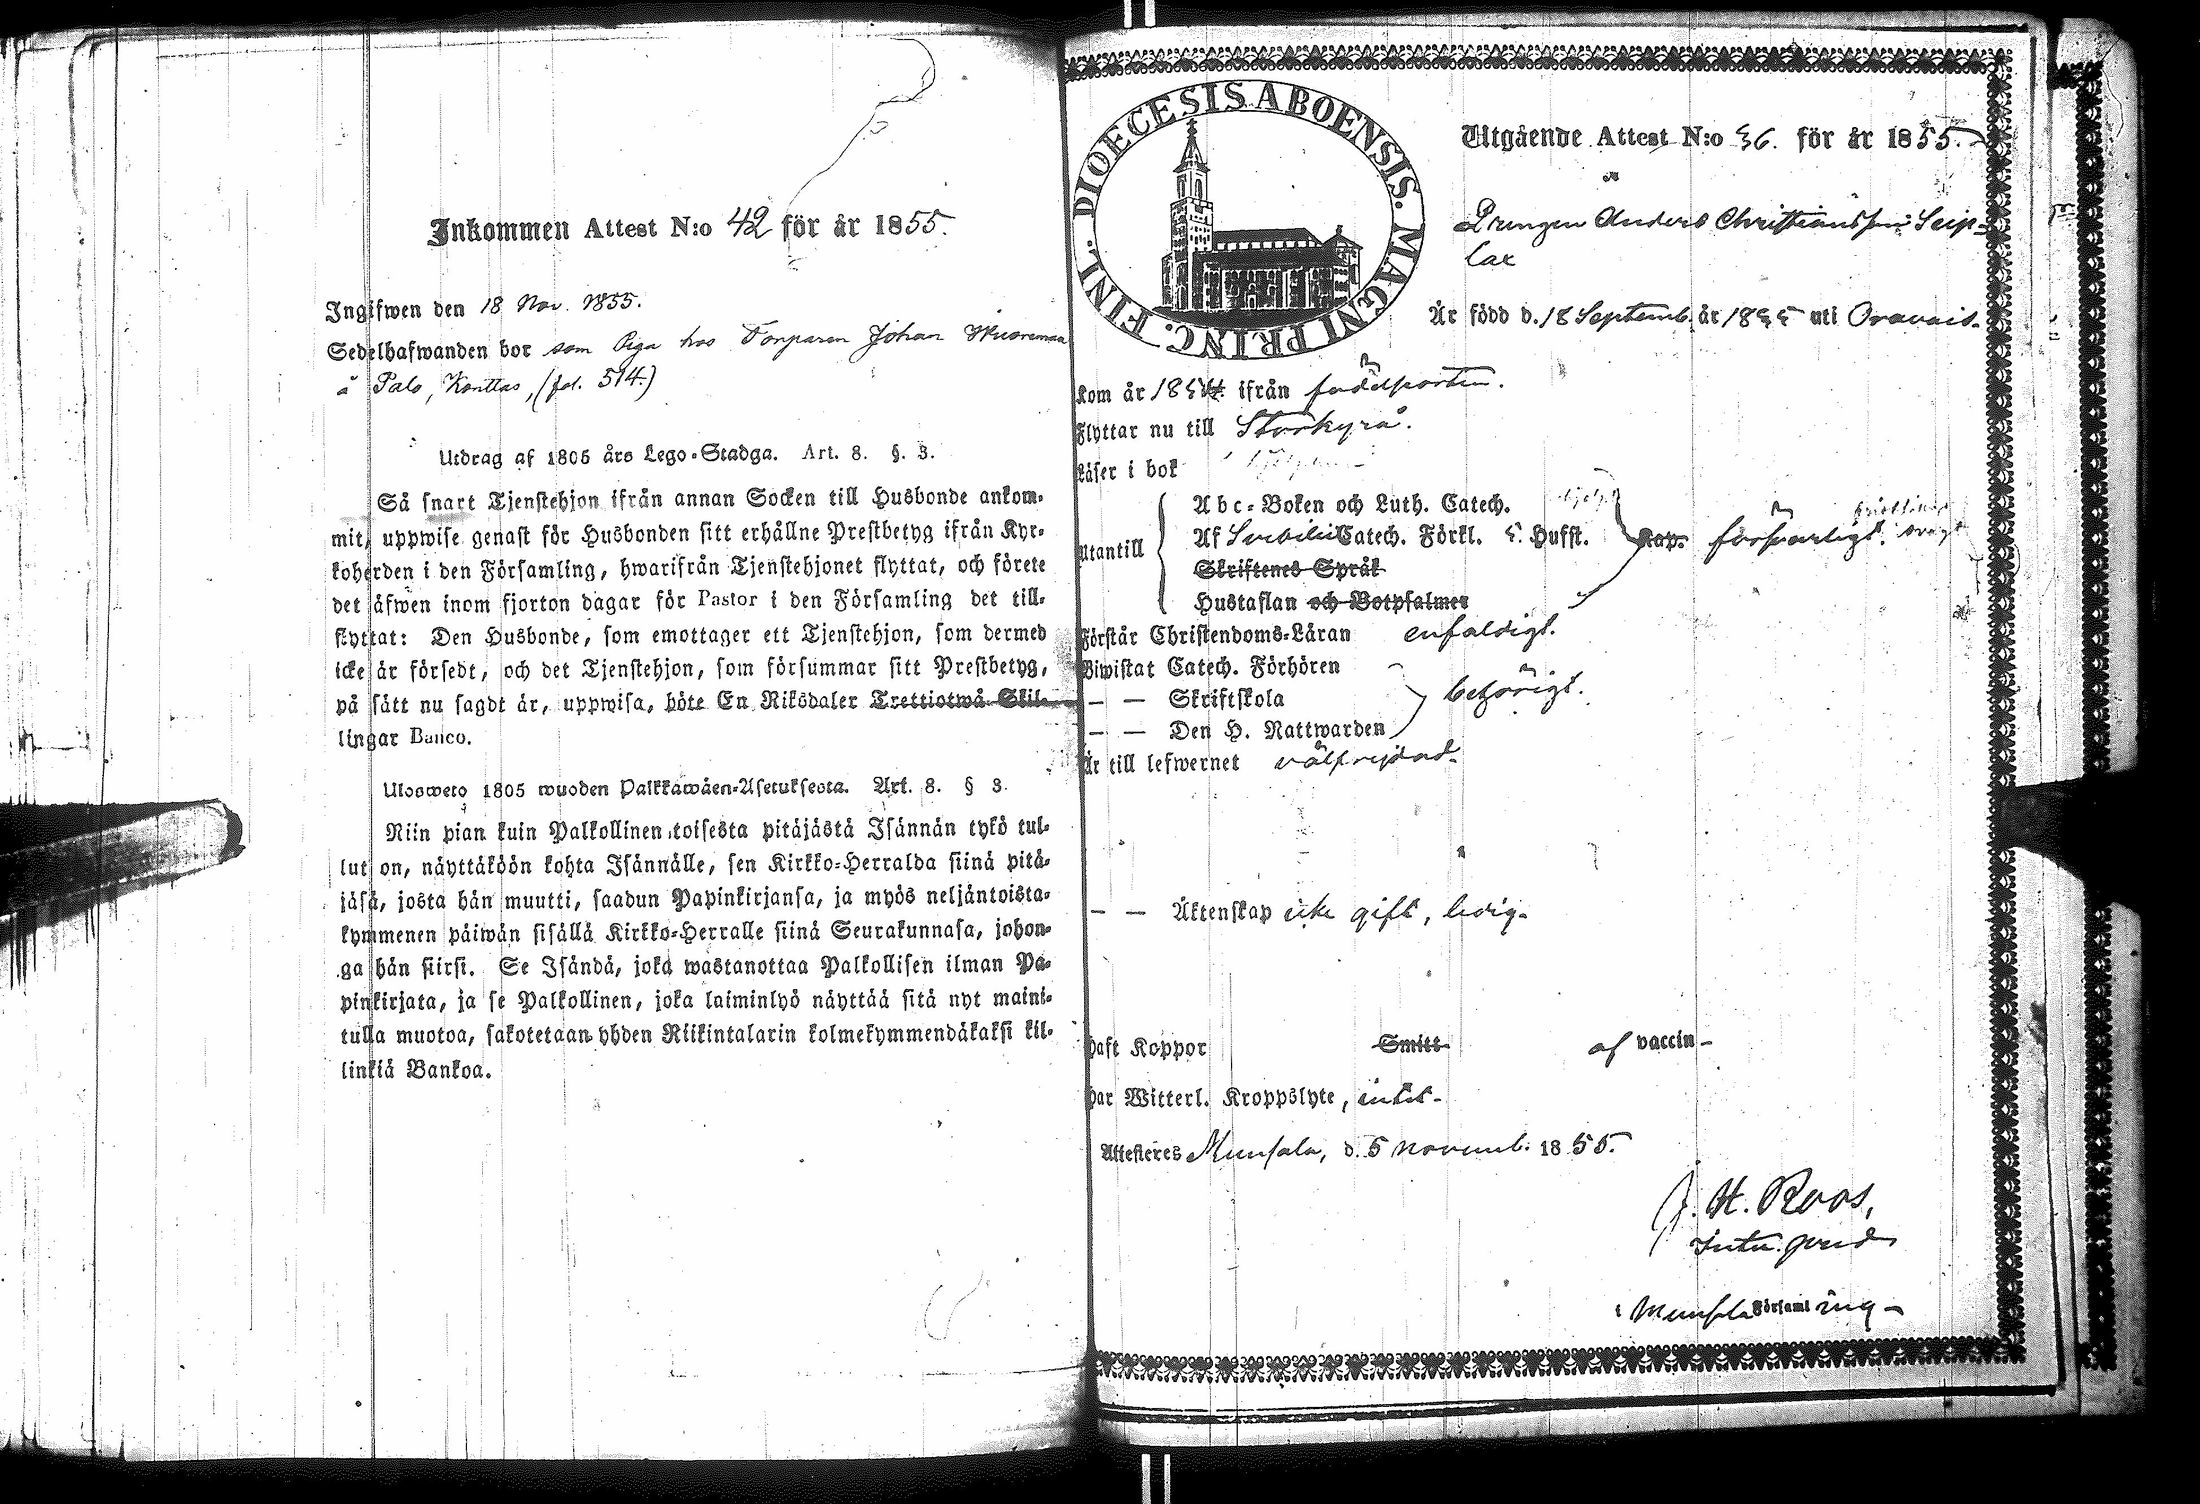 Inkommen Attest N:o 42 för år 1855.
Ingifwen den 18 Nov. 1855.
Sedelhafwanden bor som Piga hos Torparen Johan
å Palo, Konttas, (fol. 514.)
Utdrag af 1805 års Lego-Stadga. Art. 8. §. 3.
Så snart Tjenstehjon ifrån annan Socken till Husbonde ankom-
mit, uppwise genast för Husbonden sitt erhållne Prestbetyg ifrån Kyr-
koherden i den Församling, hwarifrån Tjenstehjonet flyttat, och förete
det äfwen inom fjorton dagar för Pastor i den Församling det till-
flyttat: Den Husbonde, som emottager ett Tjenstehjon, som dermed
icke är försedt, och det Tjenstehjon, som försummar sitt Prestbetyg,
på sätt nu sagdt är, uppwisa, böte En Riksdaler Trettiotwå Skil-
lingar Banco.
Ulosweto 1805 wuoden Palkkawäen-Asetuksesta. Art. 8. § 3.
Niin pian kuin Palkollinen toisesta pitäjästä Isännän tykö tul-
lut on, näyttäköön kohta Isännälle, sen Kirkko-Herralda siinä pitä-
jäsä, josta hän muutti, saadun Papinkirjansa, ja myös neljäntoista-
kymmenen päiwän sisällä Kirkko-Herralle siinä Seurakunnasa, johon-
ga hän siirsi. Se Isändä, joka wastanottaa Palkollisen ilman Pa-
pinkirjata, ja se Palkollinen, joka laiminlyö näyttää sitä nyt maini-
tulla muotoa, sakotetaan yhden Riikintalarin kolmekymmendäkaksi kil-
linkiä Bankoa.
DIOECESIS ABOENSIS. MAGNI PRINC. FINL.
Utgående Attest N:o 36. för år 1855.
Drengen Anders Christiansson Seip-
lax
Är född d. 18 Septemb. år 18 uti Oravais.
Kom år 18 ifrån födelseorten.
Flyttar nu till Storkyro.
Läser i bok
Utantill
Abc-Boken och Luth. Catech.
Af Svebilii Catech. Förkl. 5. Hufst. Kap. försvarligt.
Skriftenes Språk
Hustaflan och Botpsalmer
Förstår Christendoms-Läran enfaldigt.
Biwistat Catech. Förhören
— — Skriftskola behörigt.
— — Den H. Nattwarden
Är till lefwernet välfrejdad.
— — Äktenskap icke gift, ledig.
Haft Koppor Smitt af vaccin
Har Witterl. Kroppslyte, intet.
Attesteres Munsala, d. 5 novemb. 1855.
J. H. Roos,
i Munsala Församling